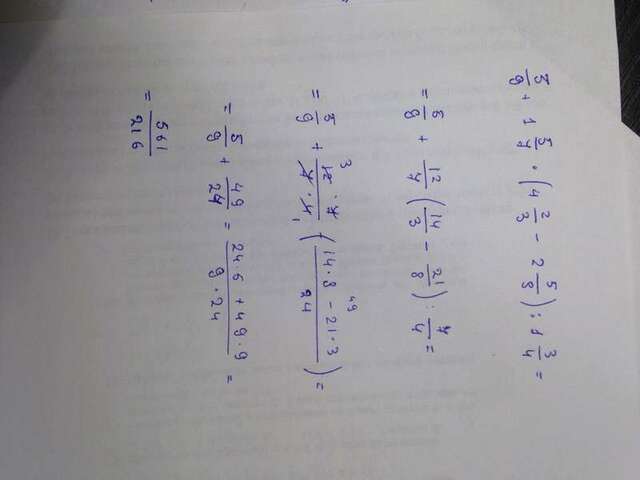 5/9 + 1 5/7 · (4 2/3 - 2 5/8) : 1 3/4 =
= 5/9 + 12/7 (14/3 - 21/8) : 7/4 =
= 5/9 + 3 12·7/7·4 1 (49 14·8 - 21·3/24) =
= 5/9 + 49/24 = 24·6 + 49·9/9·24 =
= 561/216